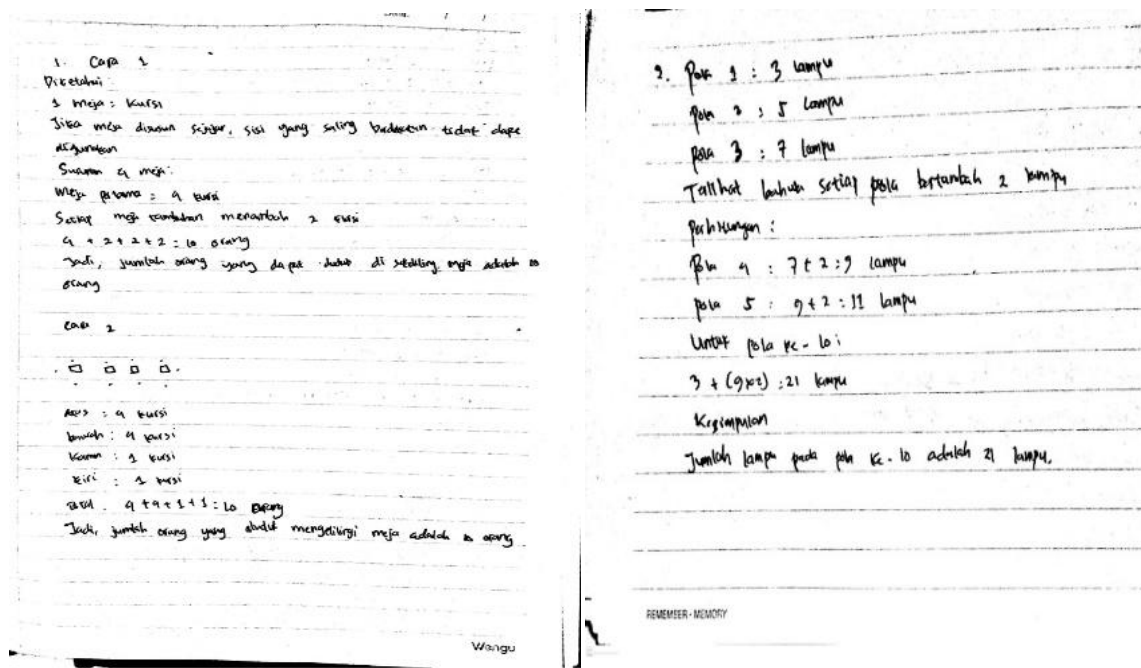 1. Cara 1
Diketahui:
1 meja : kursi
Jika meja disusun sejajar, sisi yang saling berdekatan tidak dapat
digunakan
Susunan 4 meja:
Meja pertama = 4 kursi
Setiap meja tambahan menambah 2 kursi
4 + 2 + 2 + 2 = 10 orang
Jadi, jumlah orang yang dapat duduk di sekeliling meja adalah 10
orang
Cara 2
Atas : 4 kursi
bawah : 4 kursi
Kanan : 1 kursi
kiri : 1 kursi
total 4 + 4 + 1 + 1 : 10 orang
Jadi, jumlah orang yang duduk mengelilingi meja adalah 10 orang
Wangu
2. Pola 1 : 3 lampu
Pola 2 : 5 lampu
Pola 3 : 7 lampu
bahwa setiap pola bertambah 2 lampu
Perhitungan :
Pola 4 : 7 + 2 : 9 lampu
pola 5 : 9 + 2 : 11 lampu
Untuk pola ke - 10 :
3 + (9x2) : 21 lampu
Kesimpulan
Jumlah lampu pada pola ke - 10 adalah 21 lampu.
REMEMBER - MEMORY